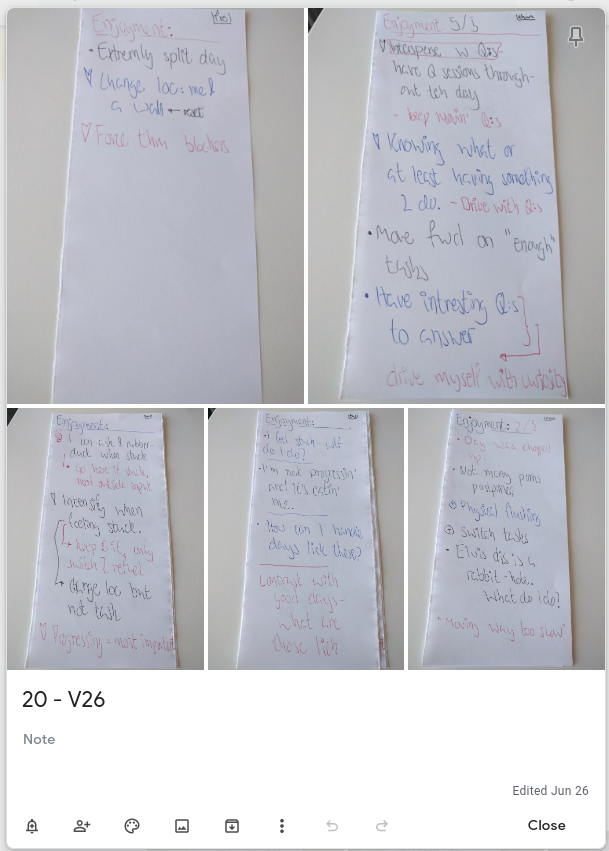 Enjoyment:
• Extremly split day
Change loc: me &
a wall ← reset
Force thru blockers
Enjoyment 5/5
Intersperse w Q:s
have Q sessions through-
out teh day
- keep movin' Q:s
Knowing what or
at least having something
2 do. - Drive with Q:s
• Move fwd on "enough"
tasks
• Have intresting Q:s
to answer
drive myself with curiosity
Enjoyment:
I can ask & rubber-
duck when stuck
Go have it stuck,
need outside input
Intensify when
feeling stuck.
→ keep it lit, only
switch 2 refuel
→ Change loc but
not task
Progressing = most important
Enjoyment:
• I feel stuck - wtf
do i do?
• I'm not progressin'
and it's eatin'
me.
• How can I handle
days like these?
Contrast with
good days -
what are
those like
Enjoyment: 2/5
• Day was chopped
up.
• Not many poms
postponed
Physical flushing
Switch tasks
• Elvis dis is a
rabbit-hole.
What do i do?
"Moving way too slow"
20 - V26
Note
Edited Jun 26
Close